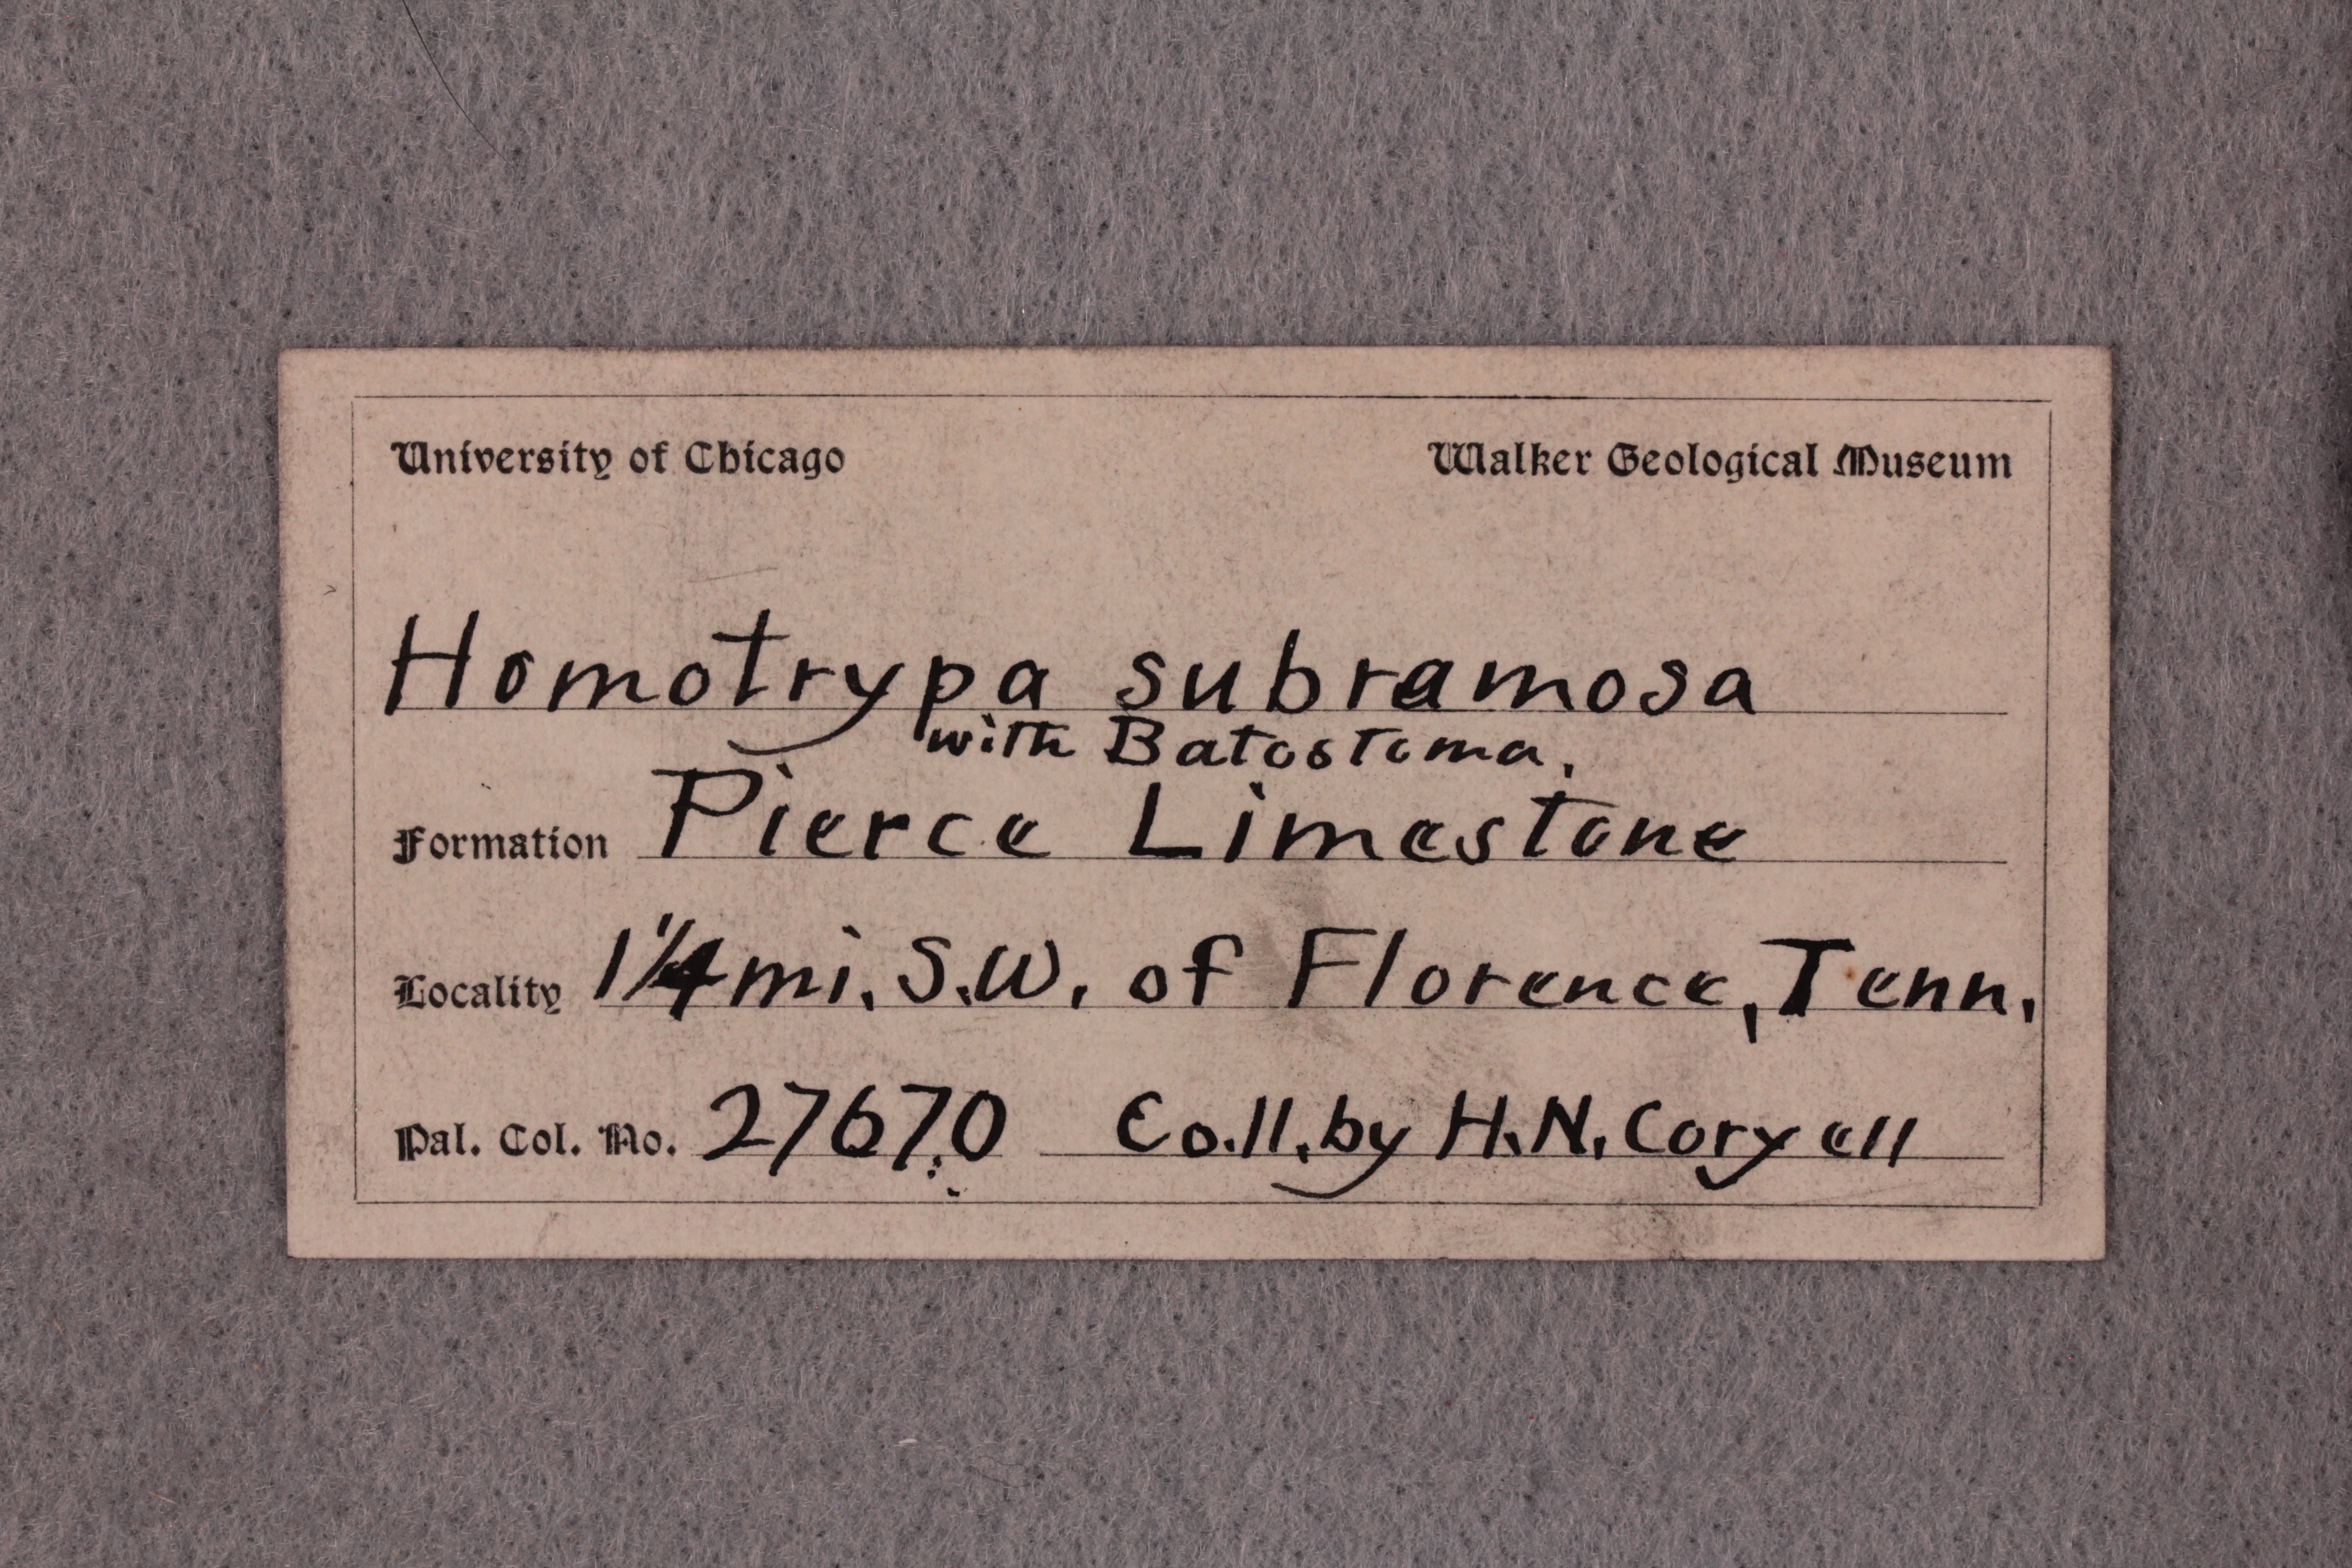 University of Chicago Walker Geological Museum
Homotrypa subramosa
with Batostoma.
Formation Pierce Limestone
Locality 1 1/4 mi. S.W. of Florence, Tenn.
Pal. Col. No. 27670 Coll. by H.N. Coryell